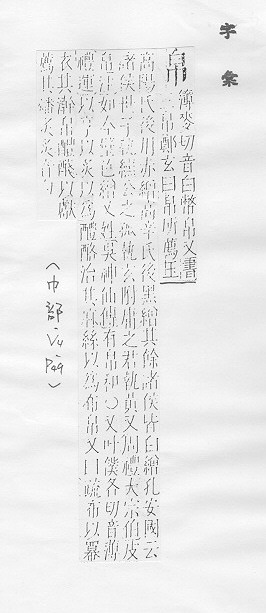 字彙
帛
簿麥切音白幣帛又書
三帛鄭玄曰帛所薦玉
高陽氏後用赤繒高辛氏後黑繒其餘諸侯皆白繒孔安國云
諸侯世子執纁公之孤執玄附庸之君執黃又周禮大宗伯皮
帛注如今璧色繒又姓吳神仙傳有帛和○又叶僕各切音薄
禮運以亨以炙以爲醴酪治其麻絲以爲布帛又曰疏布以冪
衣其澣帛醴醆以獻
薦其燔炙炙音
(巾部 P29)